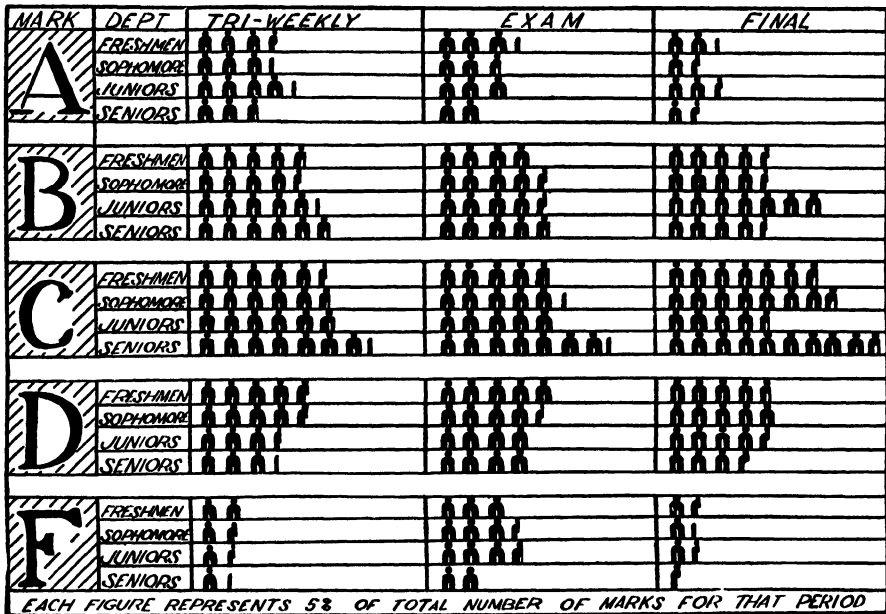 MARK DEPT TRI-WEEKLY EXAM FINAL
A
FRESHMEN
SOPHOMORE
JUNIORS
SENIORS
B
FRESHMEN
SOPHOMORE
JUNIORS
SENIORS
C
FRESHMEN
SOPHOMORE
JUNIORS
SENIORS
D
FRESHMEN
SOPHOMORE
JUNIORS
SENIORS
F
FRESHMEN
SOPHOMORE
JUNIORS
SENIORS
EACH FIGURE REPRESENTS 5% OF TOTAL NUMBER OF MARKS FOR THAT PERIOD